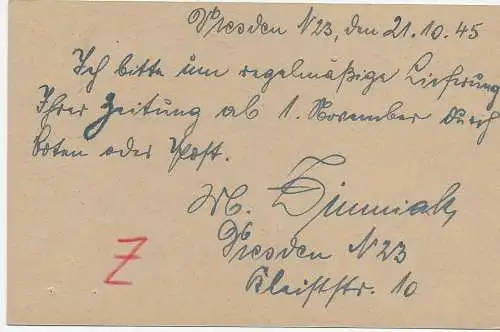 Dresden N23, den 21.10.45
Ich bitte um regelmäßige Lieferung
Ihrer Zeitung ab 1. November durch
Boten oder Post.
M.
Dresden N23
Kleiststr. 10
Z